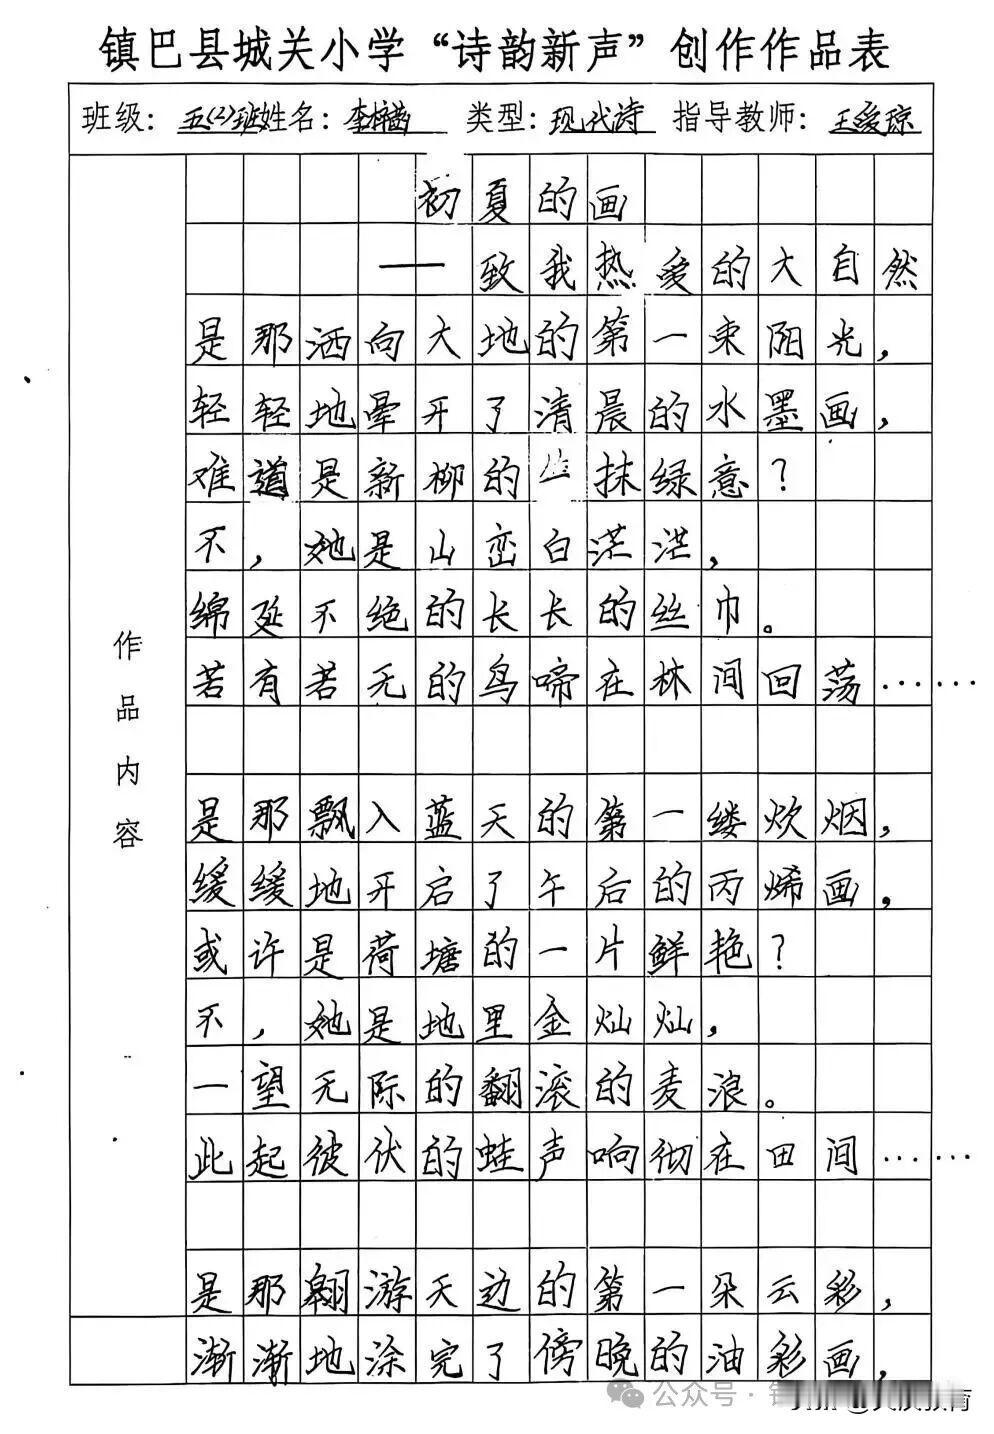 镇巴县城关小学“诗韵新声”创作作品表
班级：五(2)班 姓名：李 类型：现代诗 指导教师：王爱琼
作品内容
初夏的画
——致我热爱的大自然
是那洒向大地的第一束阳光，
轻轻地晕开了清晨的水墨画，
难道是新柳的一抹绿意？
不，她是山峦白茫茫，
绵延不绝的长长的丝巾。
若有若无的鸟啼在林间回荡……
是那飘入蓝天的第一缕炊烟，
缓缓地开启了午后的丙烯画，
或许是荷塘的一片鲜艳？
不，她是地里金灿灿，
一望无际的翻滚的麦浪。
此起彼伏的蛙声响彻在田间……
是那翱游天边的第一朵云彩，
渐渐地涂完了傍晚的油彩画，
公众号·镇
教育